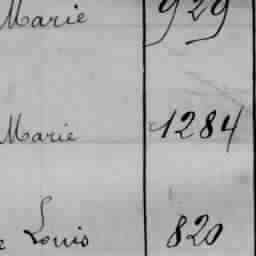 Marie 929
Marie 1284
Louis 820